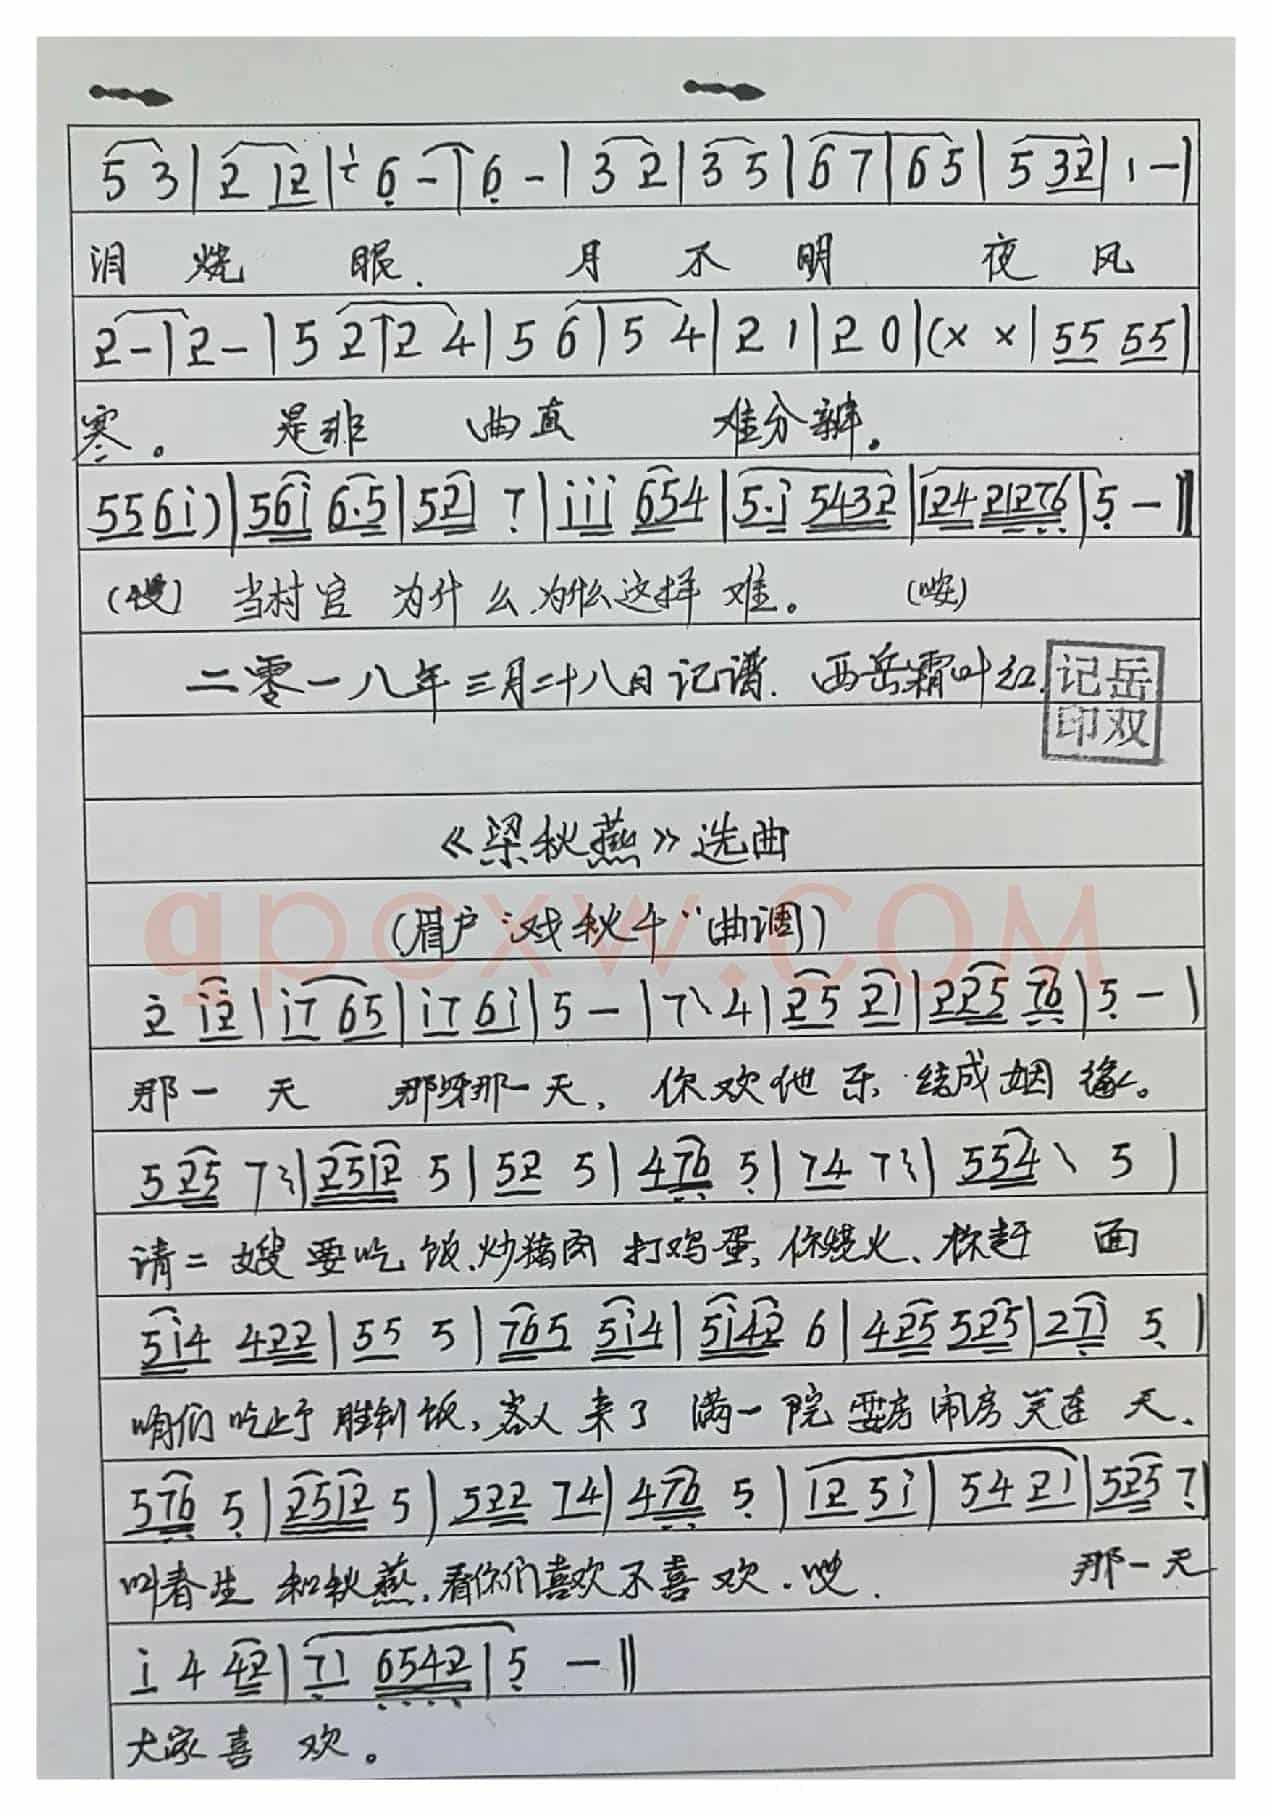 5 3 | 2 12 | 6 - | 6 - | 3 2 | 3 5 | 6 7 | 6 5 | 5 32 | 1 - |
泪烧眼. 月不明 夜风
2 - | 2 - | 5 2 | 2 4 | 5 6 | 5 4 | 2 1 | 2 0 | (x x | 55 55 |
寒。 是非 曲直 难分辨。
55 6i) | 56i 6·5 | 521 7 | iii 654 | 5·i 5432 | 124 21276 | 5 - ‖
当村官 为什么.为什么这样 难。
二零一八年三月二十八日记谱. 西岳霜叶红.
记岳
印双
《梁秋燕》选曲
(眉户"戏秋千"曲调)
qpcxw.com
2 i2 | i7 65 | i7 6i | 5 - | 7 4 | 25 21 | 225 76 | 5 - |
那一天 那呀那一天, 你欢他乐 结成姻缘。
525 7 | 2512 5 | 52 5 | 476 5 | 74 7 | 554 5 |
请二嫂要吃饭.炒猪肉 打鸡蛋, 你烧火、你赶 面
5i4 422 | 55 5 | 765 5i4 | 5i42 6 | 425 525 | 271 5 |
咱们吃上 饭, 客人来了 满一院 耍房闹房笑连天.
576 5 | 2512 5 | 522 74 | 476 5 | 12 5i | 54 21 | 525 7 |
叫春生 和秋燕, 看你们喜欢不喜欢. 那一天
i 4 42 | 71 6542 | 5 - ‖
大家喜欢。